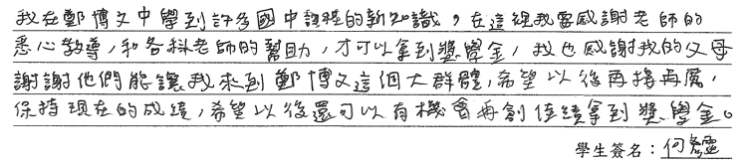 我在鄭博文中學到許多國中課程的新知識，在這裡我要感謝老師的
悉心教導，和各科老師的幫助，才可以拿到獎學金，我也感謝我的父母
謝謝他們能讓我來到鄭博文這個大群體，希望以後再接再厲，
保持現在的成績，希望以後還可以有機會再創佳績拿到獎學金。
學生簽名：何